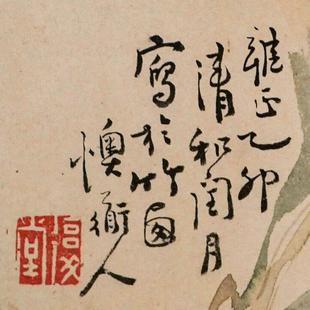 雍正乙卯
清和閏月
寫於竹西
懊衜人